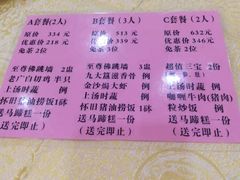 A套餐(2人)
原价 334 元
优惠价 218 元
免茶 2位
至尊佛跳墙 2盅
老广白切鸡 半只
上汤时蔬 例
怀旧猪油捞饭1砵
送马蹄糕一份
(送完即止)
B套餐(3人)
原价 513 元
优惠价 339 元
免茶 3位
至尊佛跳墙 3盅
九大簋滋香骨 例
金沙焗大虾 例
上汤时蔬 例
怀旧猪油捞饭1砵
送马蹄糕一份
(送完即止)
C套餐(2人)
原价 632 元
优惠价 346 元
免茶 2位
超值三宝 2份
上汤时蔬 例
咖喱牛肉(猪肉)
粒炒饭 例
送马蹄糕一份
(送完即止)